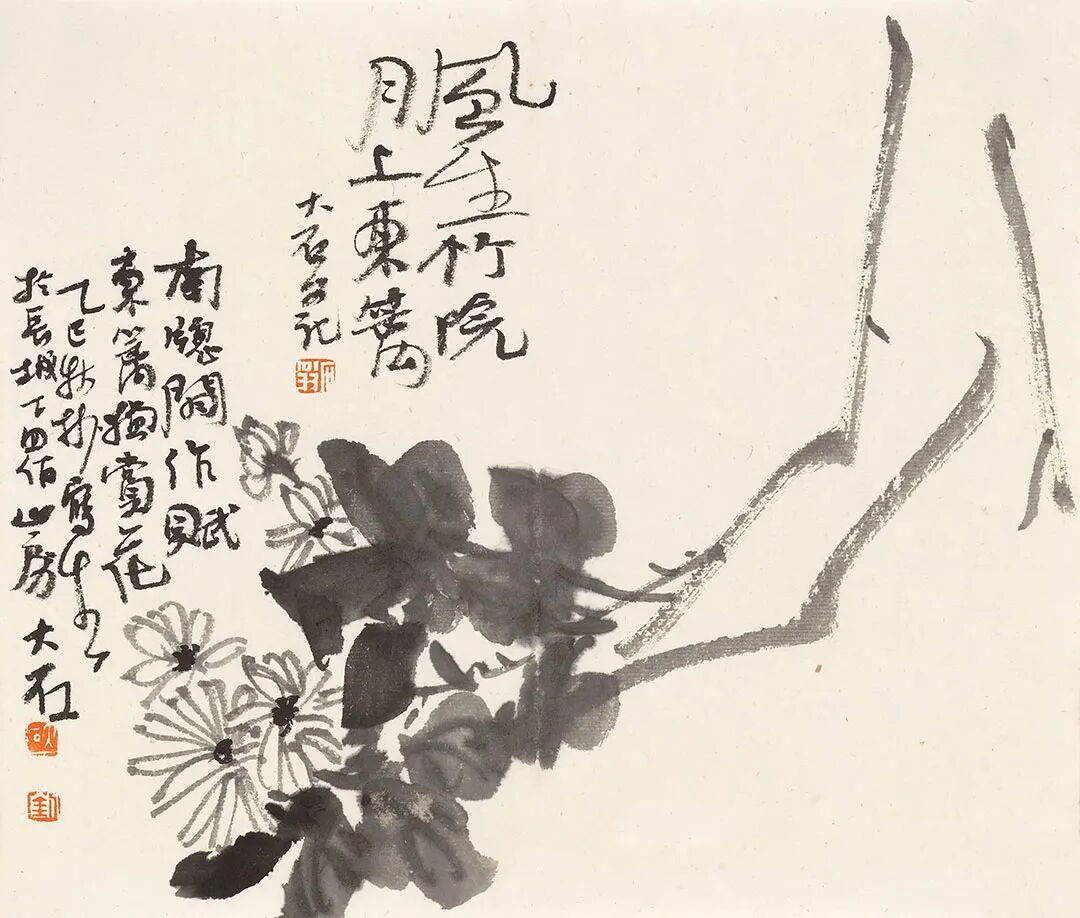 風生竹院
月上東籬
大石記
南牕閒作賦
東籬賞花
乙巳秋杪寫生
於長塅丁四伯山房 大石